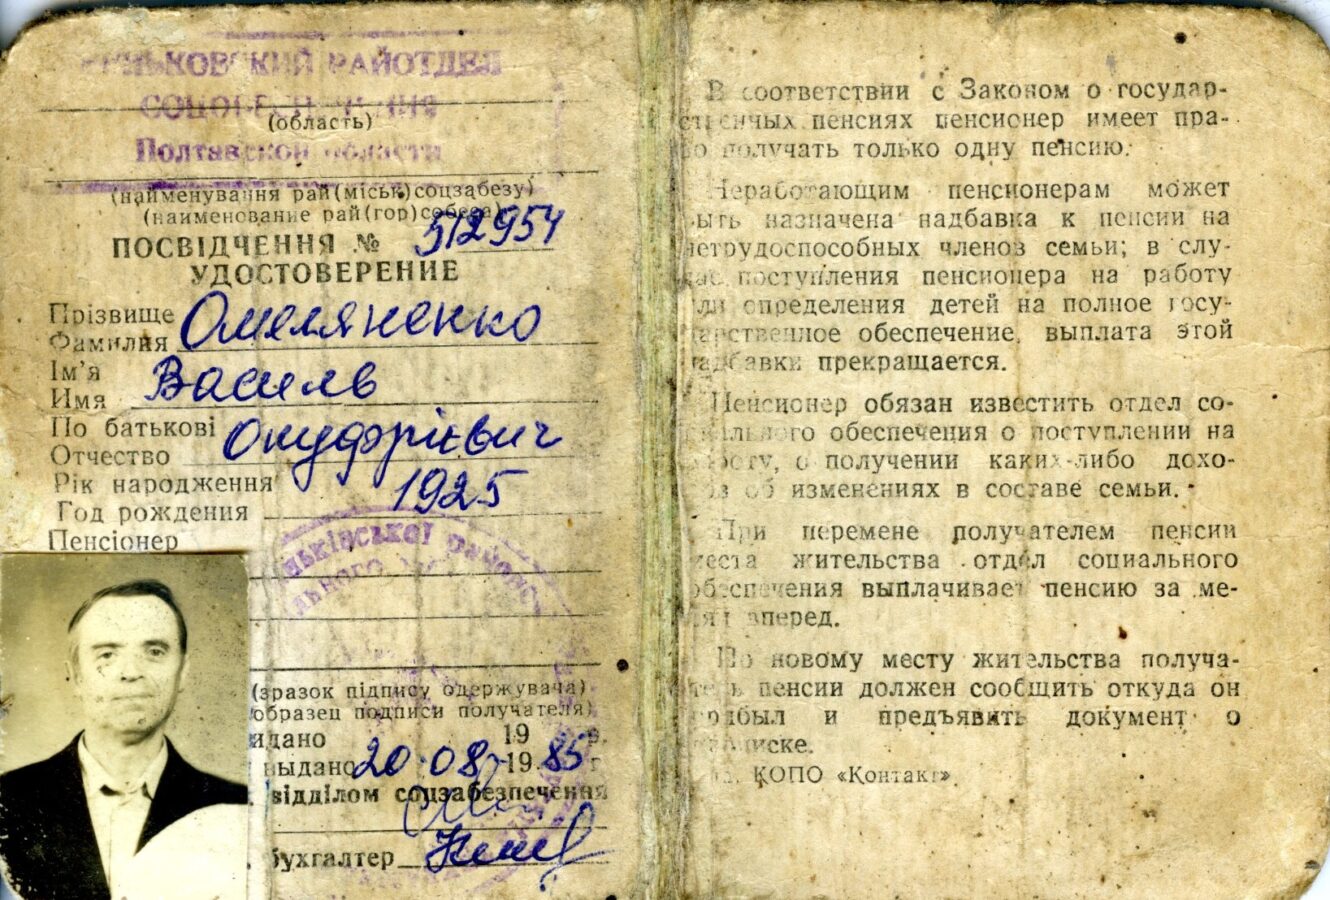 РАЙОТДЕЛ
Полтавской области
(область)
(найменування рай(міськ)соцзабезу)
(наименование рай(гор)собеса)
ПОСВІДЧЕННЯ № 512954
УДОСТОВЕРЕНИЕ
Прізвище Омеляненко
Фамилия
Ім'я Василь
Имя
По батькові Онуфрієвич
Отчество
Рік народження 1925
Год рождения
Пенсіонер
(зразок підпису одержувача)
образец подписи получателя)
идано 19 р.
выдано 20.08.1985 г
відділом соцзабезпечення
бухгалтер
В соответствии с Законом о государ-
ственных пенсиях пенсионер имеет пра-
во получать только одну пенсию.
Неработающим пенсионерам может
быть назначена надбавка к пенсии на
нетрудоспособных членов семьи; в слу-
чае поступления пенсионера на работу
или определения детей на полное госу-
дарственное обеспечение, выплата этой
надбавки прекращается.
Пенсионер обязан известить отдел со-
циального обеспечения о поступлении на
работу, о получении каких-либо дохо-
дов об изменениях в составе семьи.
При перемене получателем пенсии
места жительства отдел социального
обеспечения выплачивает пенсию за ме-
сяц вперед.
По новому месту жительства получа-
тель пенсии должен сообщить откуда он
прибыл и предъявить документ о
прописке.
КОПО «Контакт».